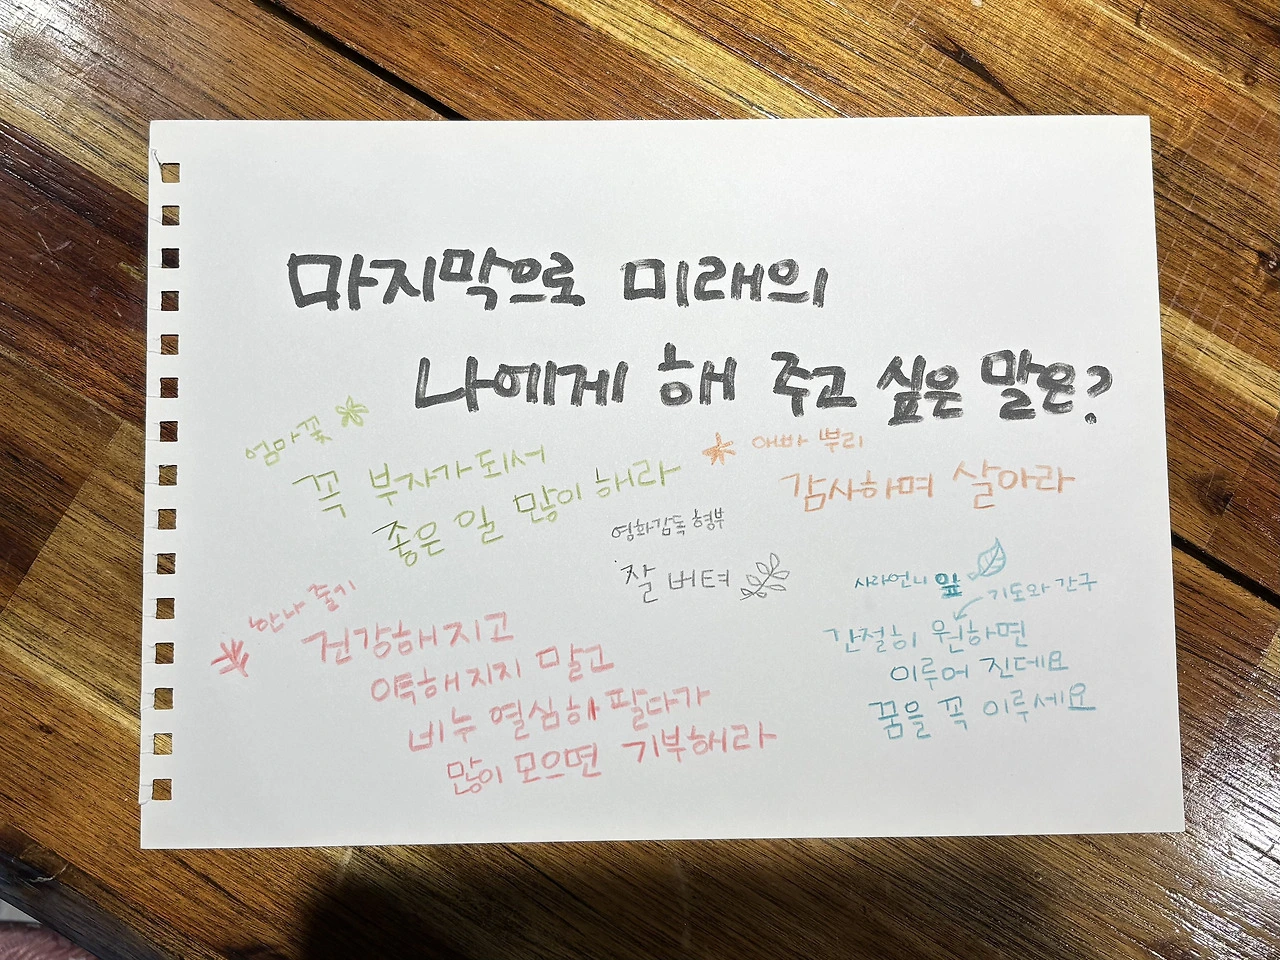 마지막으로 미래의
나에게 해 주고 싶은 말은?
엄마 꽃
꼭 부자가 되서
좋은 일 많이 해라
아빠 뿌리
감사하며 살아라
영화감독 형부
잘 버텨
한나 줄기
건강해지고
약해지지 말고
비누 열심히 팔다가
많이 모으면 기부해라
사라언니 잎
기도와 간구
간절히 원하면
이루어 진데요
꿈을 꼭 이루세요